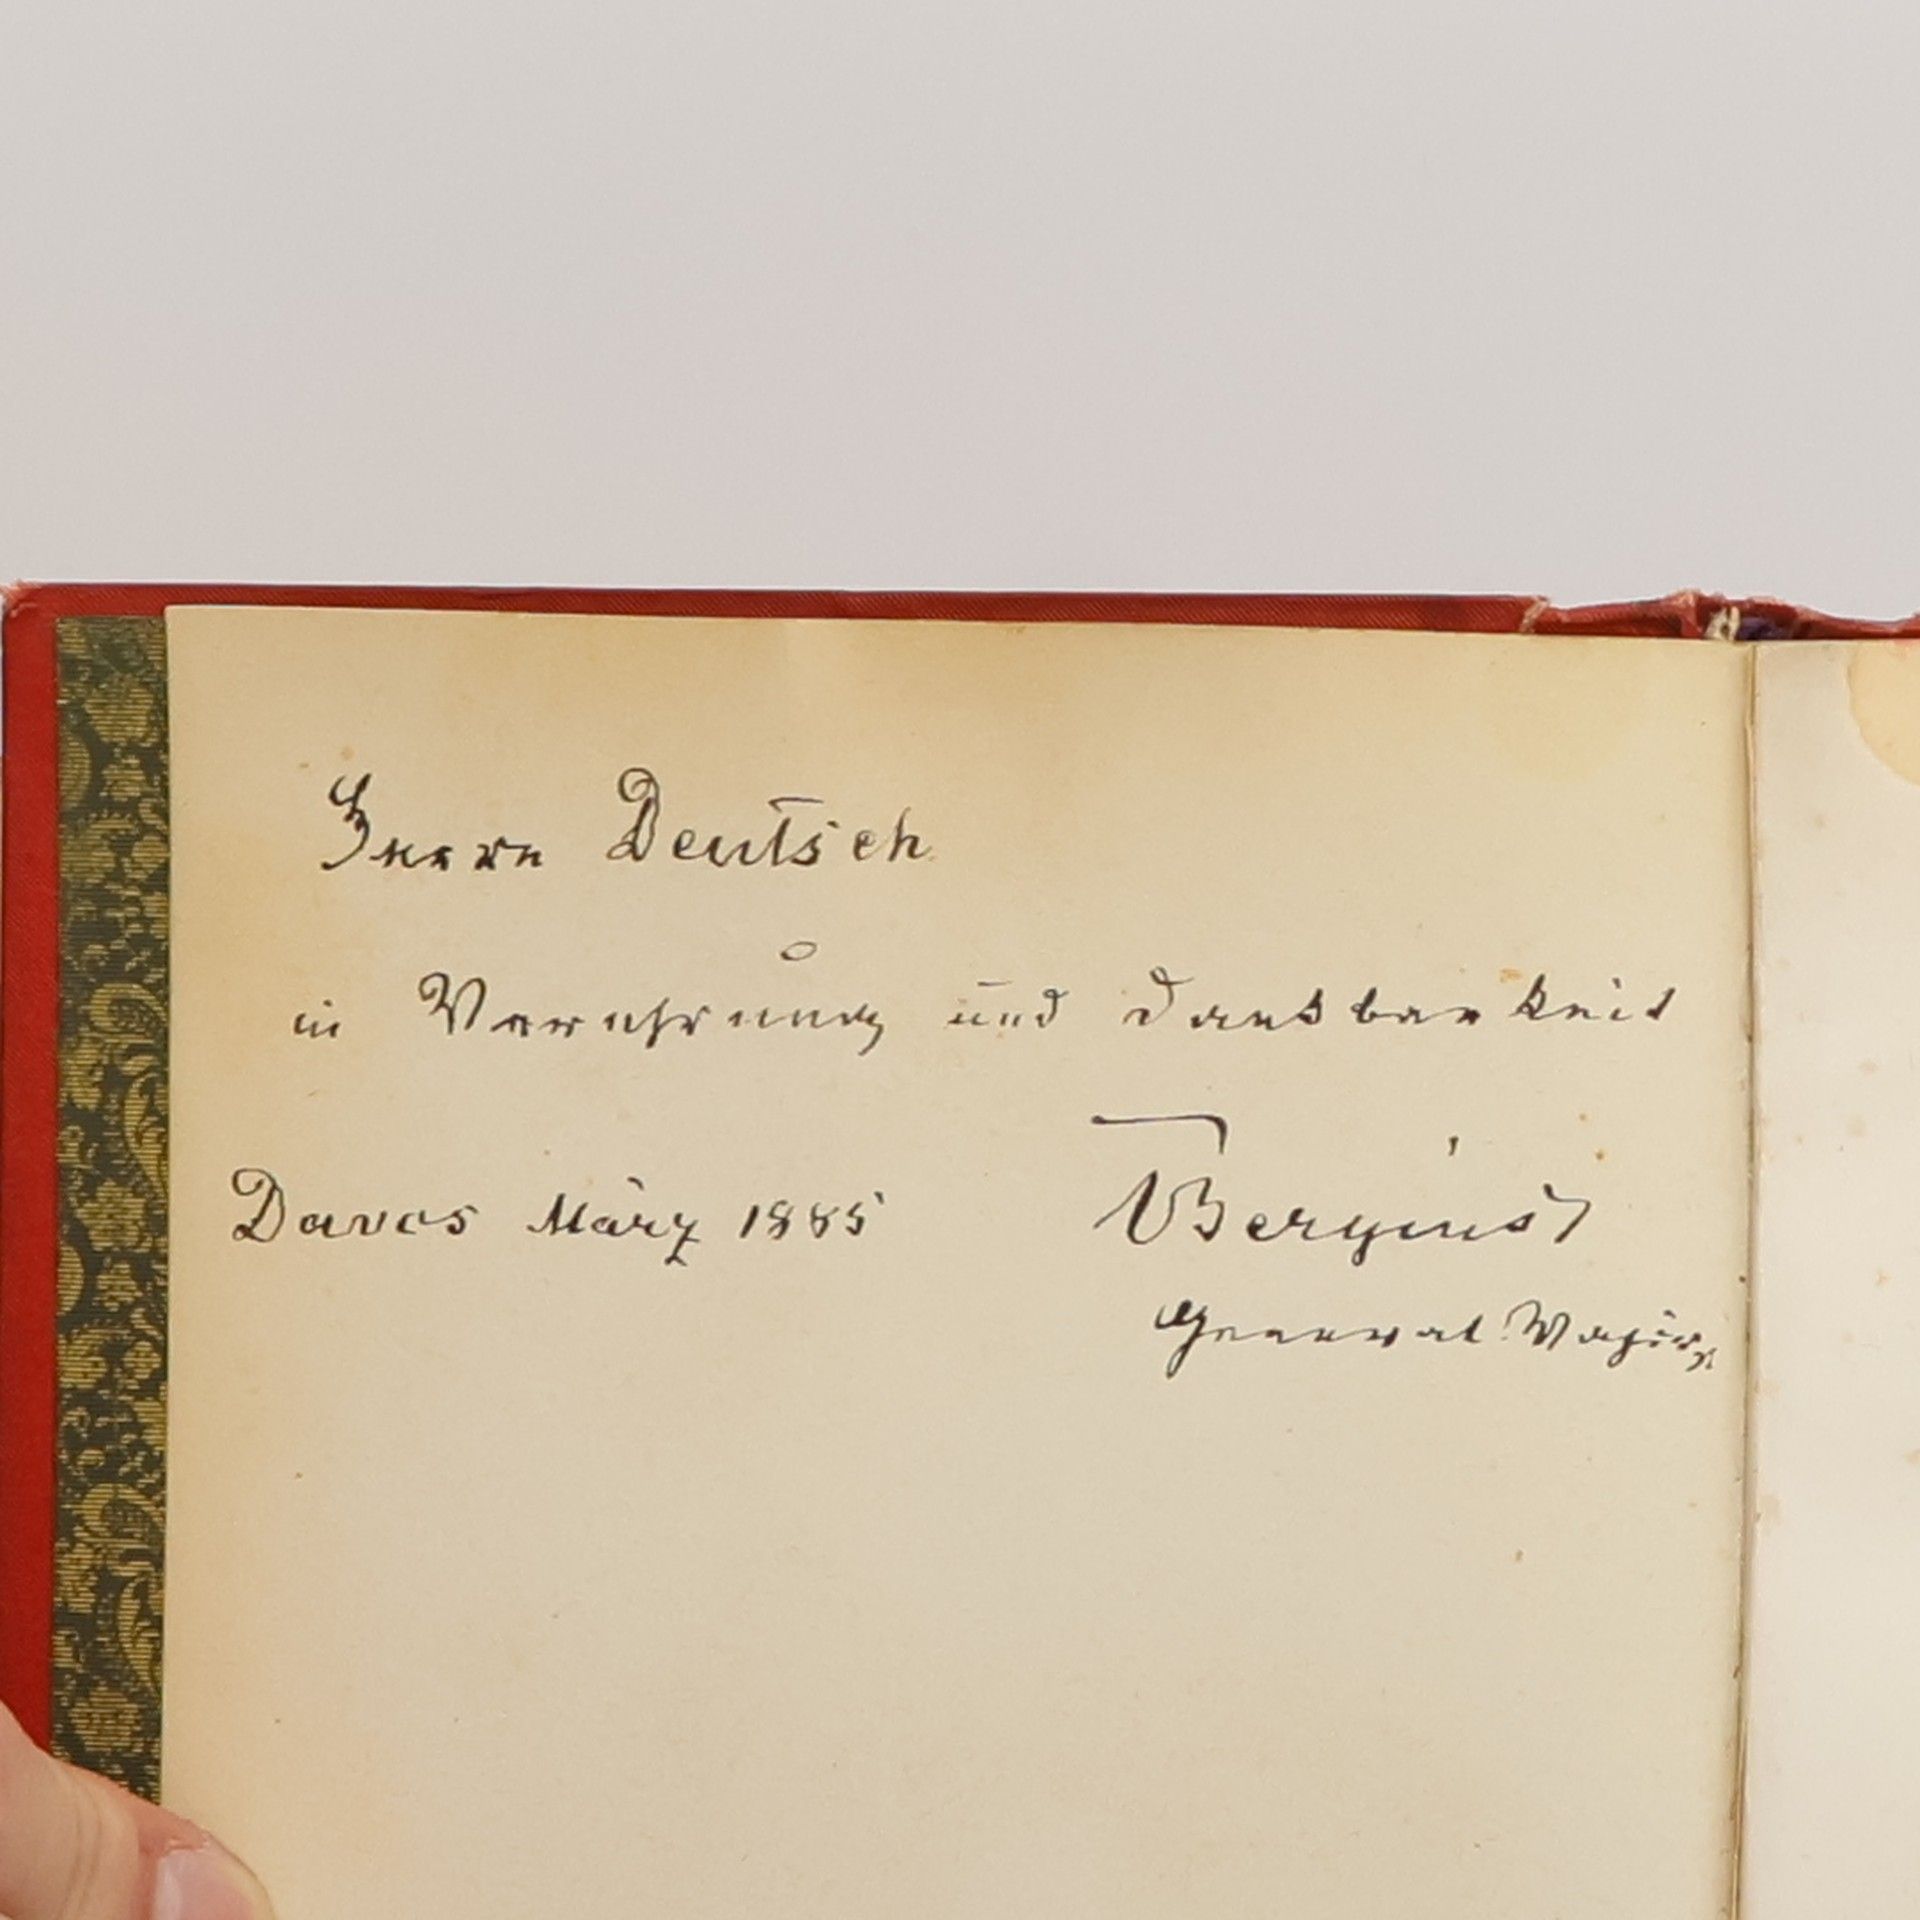 Herrn Deutsch
in Verehrung und Dankbarkeit
Davos März 1885
General